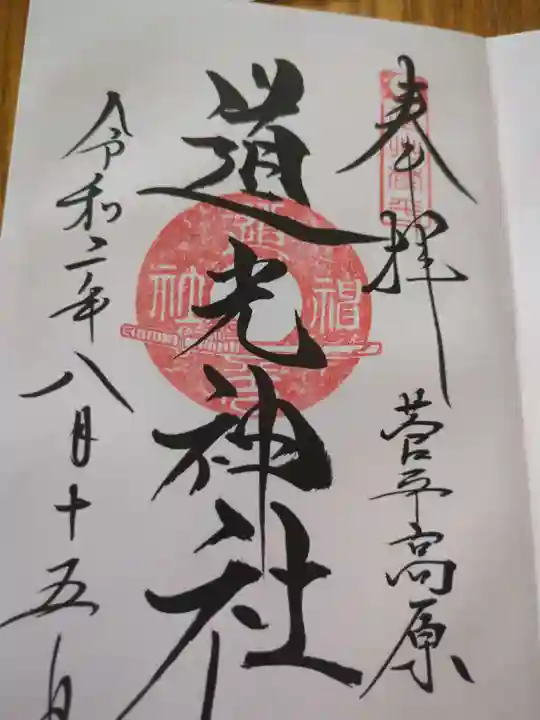 奉拝
菅平高原
道光神社
令和二年八月十五日